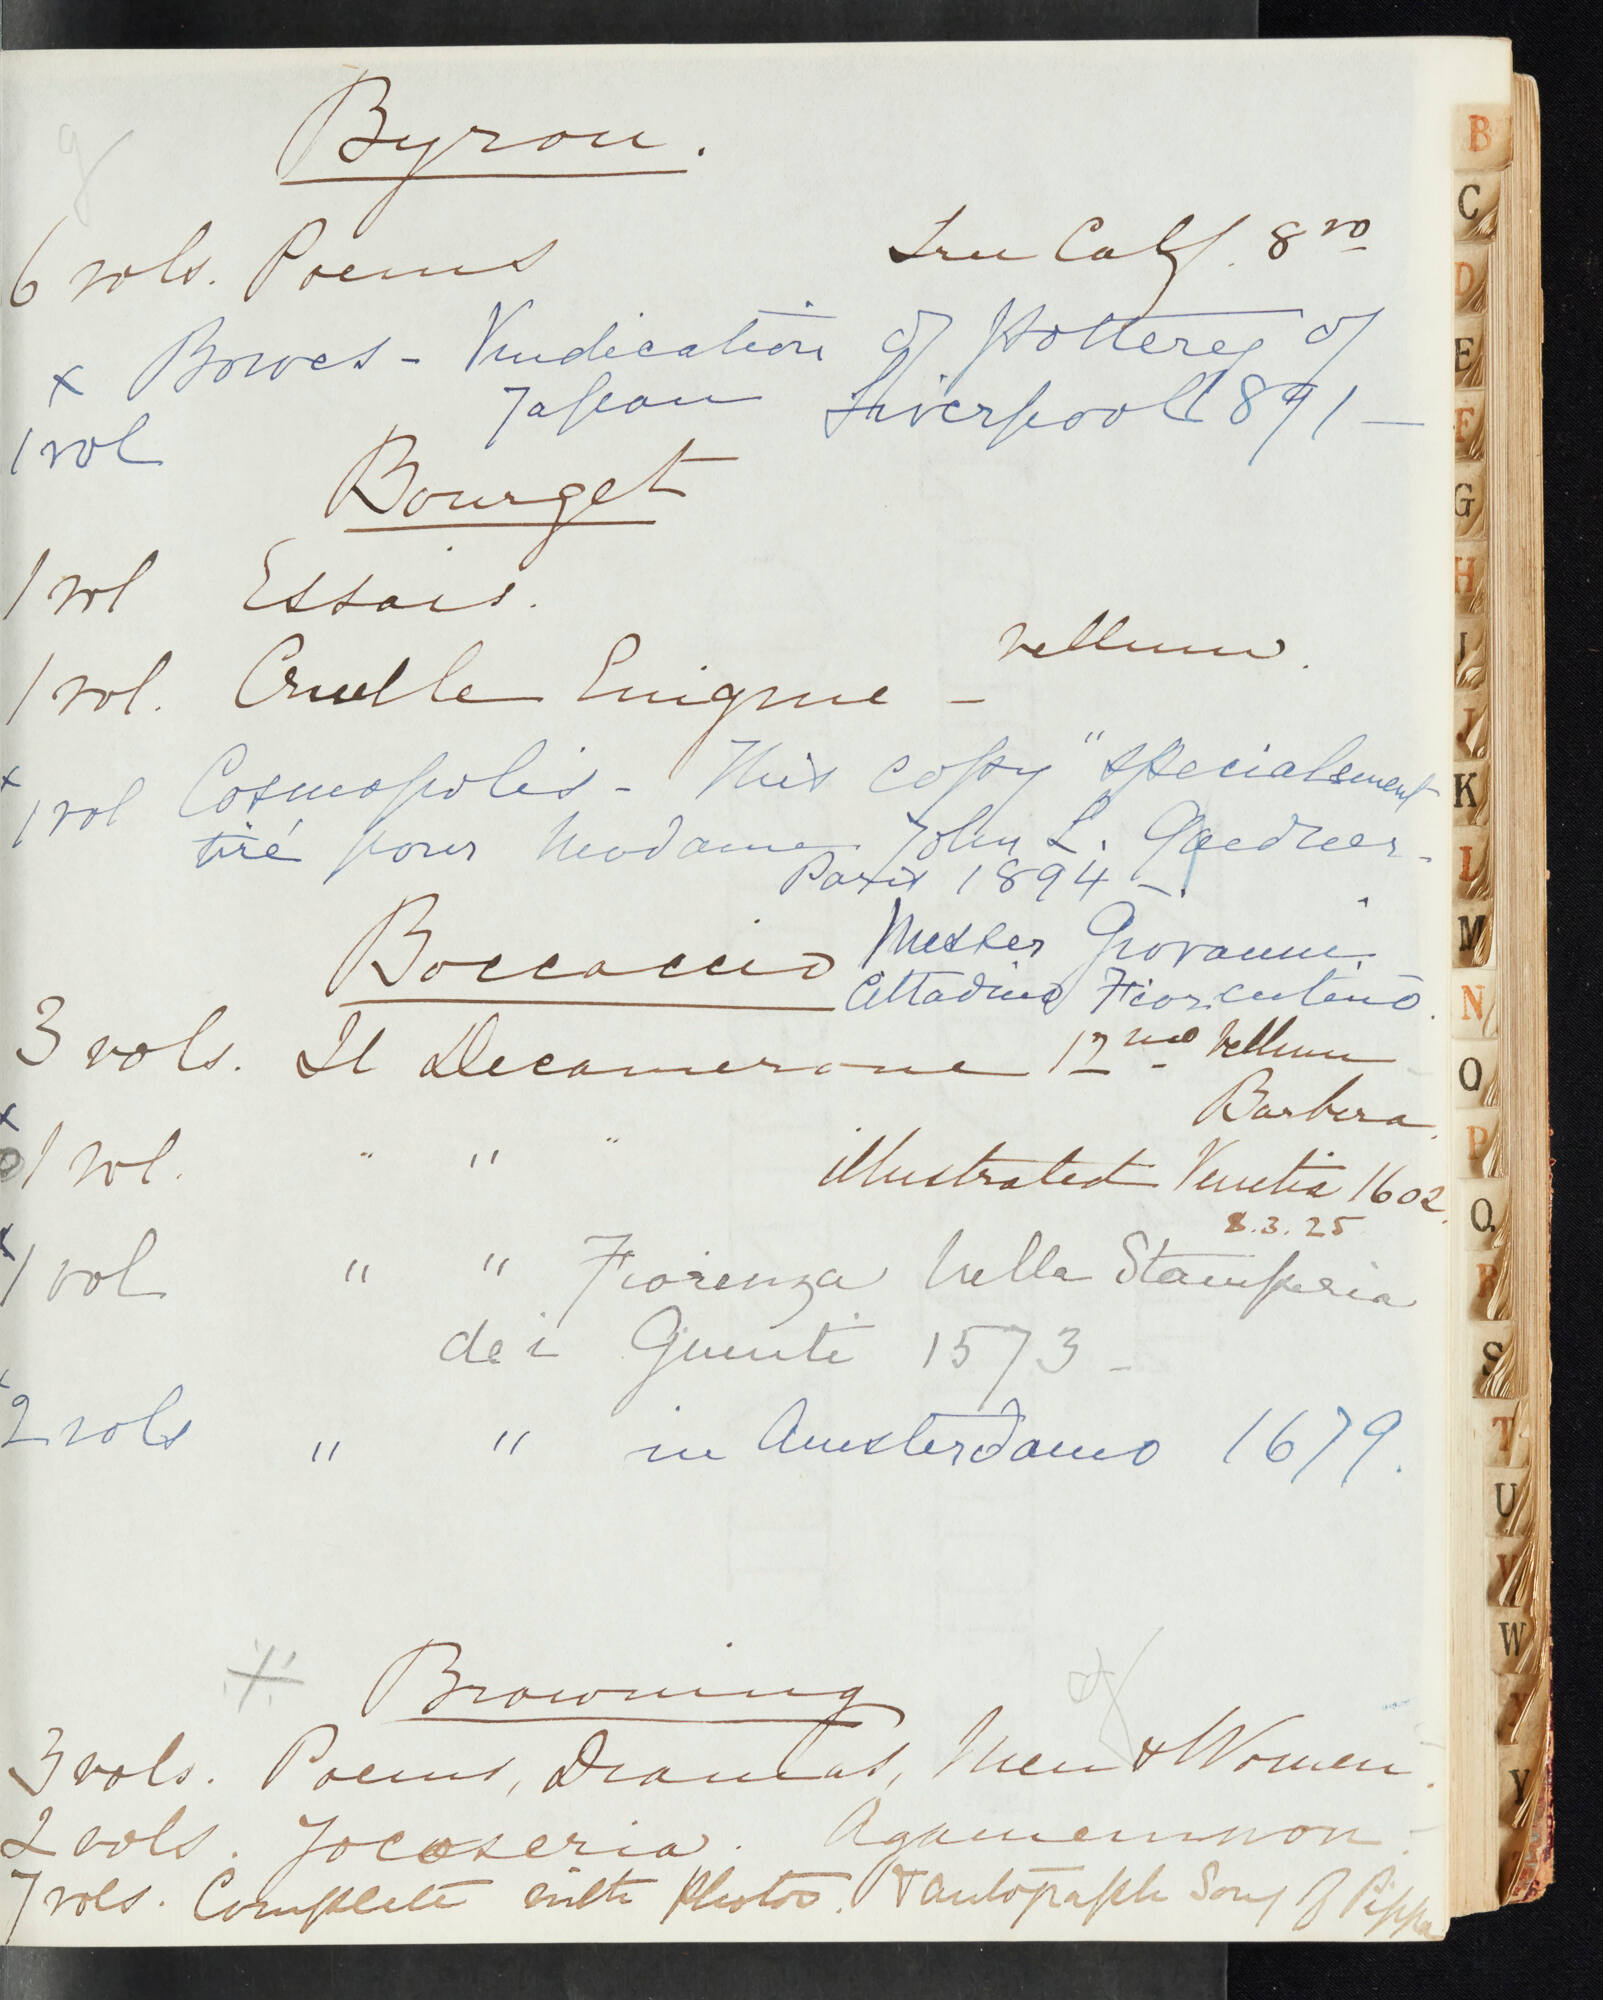 Byron.
6 vols. Poems Tree Calf. 8vo
x Bowes - Vindication of Pottery of
Japan Liverpool 1891 -
1 vol
Bourget
1 vol Essais.
1 vol. Cruelle Enigme - vellum.
x 1 vol Cosmopolis - This copy "specialement
tiré pour Madame John L. Gardner -
Paris 1894 -
Boccaccio Messer Giovanni
Cittadino Fiorentino.
3 vols. Il Decamerone 12mo Vellum
Barbera.
x 1 vol. " " " illustrated Venetia 1602.
8.3.25
x 1 vol " " Fiorenza Nella Stamperia
dei Giunti 1573 -
x 2 vols " " in Amsterdamo 1679.
Browning
3 vols. Poems, Dramas, Men & Women.
2 vols. Jocoseria. Agamemnon.
7 vols. Complete with Photos. & autograph Song of Pippa
B
C
D
E
F
G
H
I
J
K
L
M
N
O
P
Q
R
S
T
U
V
W
X
Y